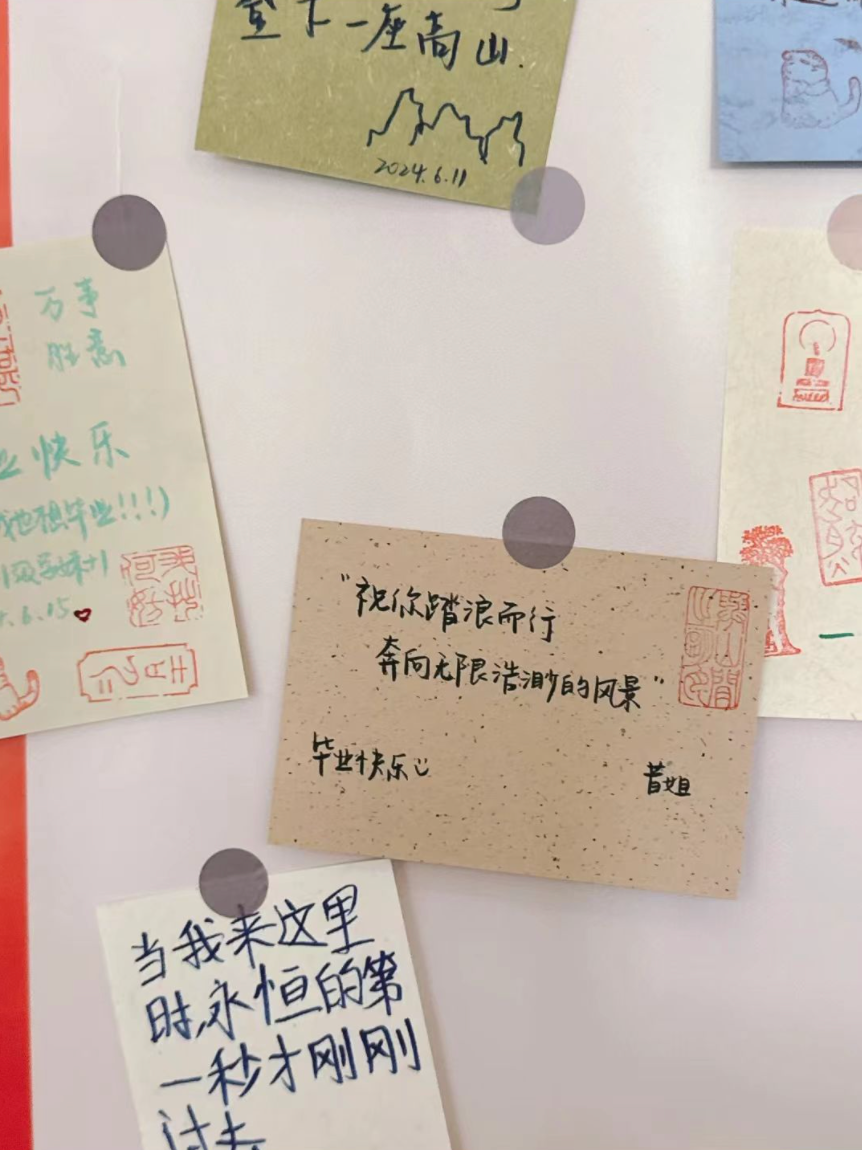 登下一座高山.
2024.6.11
万事
胜意
业快乐
我也想毕业!!!)
.6.15
"祝你踏浪而行
奔向无限浩渺的风景"
毕业快乐
昔姐
当我来这里
时,永恒的第
一秒才刚刚
过去